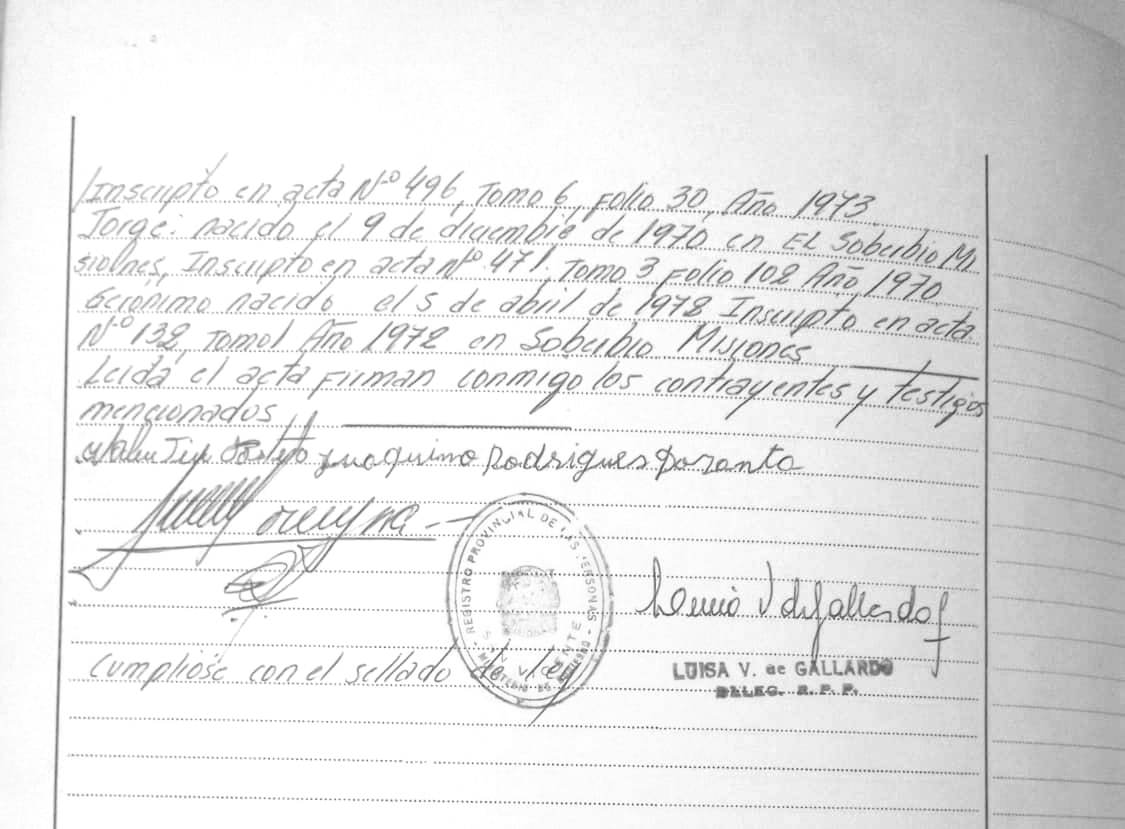 Inscripto en acta Nº 496, Tomo 6, Folio 30, Año 1973
Jorge: nacido el 9 de diciembre de 1970 en EL Soberbio Mi
siones, Inscripto en acta Nº 471. Tomo 3 Folio 102 Año 1970
Gerónimo nacido el 5 de abril de 1972 Inscripto en acta
Nº 132, Tomo 1 Año 1972 en Soberbio Misiones
Leida el acta Firman conmigo los contrayentes y testigos
mencionados
Juaquina Rodrigues
REGISTRO PROVINCIAL DE LAS PERSONAS
Cumpliose con el sellado de ley
LUISA V. de GALLARDO
DELEG. R. P. P.